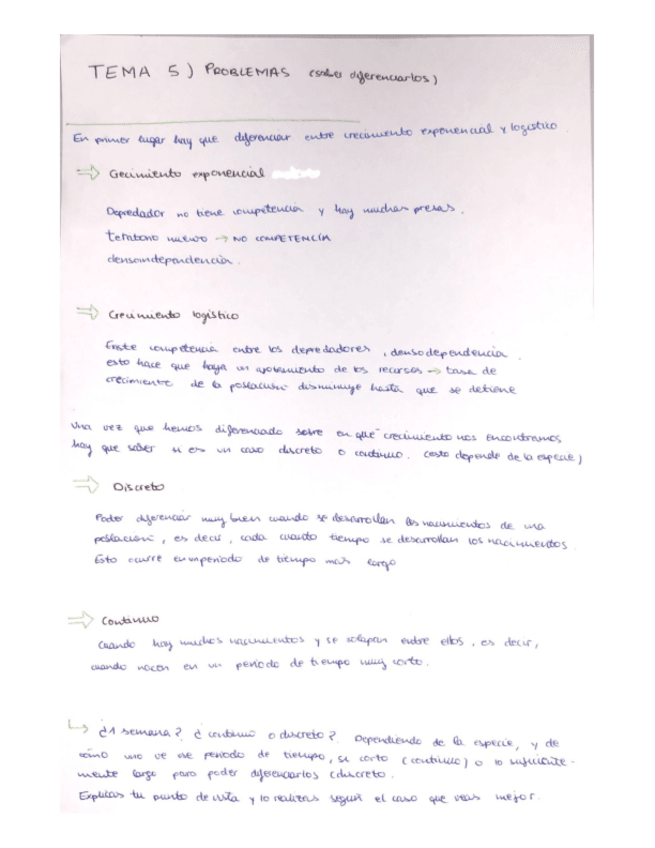 TEMA 5) PROBLEMAS (saber diferenciarlos)
En primer lugar hay que diferenciar entre crecimiento exponencial y logístico
⇒ Crecimiento exponencial
Depredador no tiene competencia y hay muchas presas.
territorio nuevo → NO COMPETENCÍA
densoindependencia.
⇒ Crecimiento logístico
Existe competencia entre los depredadores, densodependencia.
esto hace que haya un agotamiento de los recursos → tasa de
crecimiento de la población disminuye hasta que se detiene
Una vez que hemos diferenciado sobre en que crecimiento nos encontramos
hay que saber si es un caso discreto o continuo. (esto depende de la especie)
⇒ Discreto
Poder diferenciar muy bien cuando se desarrollan los nacimientos de una
población, es decir, cada cuanto tiempo se desarrollan los nacimientos.
Esto ocurre en un periodo de tiempo mas largo
⇒ Continuo
Cuando hay muchos nacimientos y se solapan entre ellos, es decir,
cuando nacen en un periodo de tiempo muy corto.
↳ ¿1 semana?, ¿continuo o discreto?. Dependiendo de la especie, y de
cómo uno ve ese periodo de tiempo, si corto (continuo) o lo suficiente-
mente largo para poder diferenciarlos (discreto.
Explicas tu punto de vista y lo realizas según el caso que veas mejor.